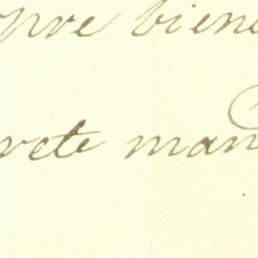 opre biene
rete man